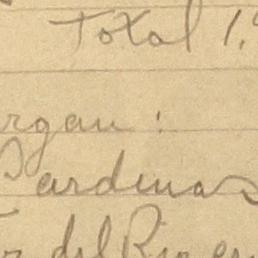 Total 1.
rgan:
Cardenas
r del Rio en